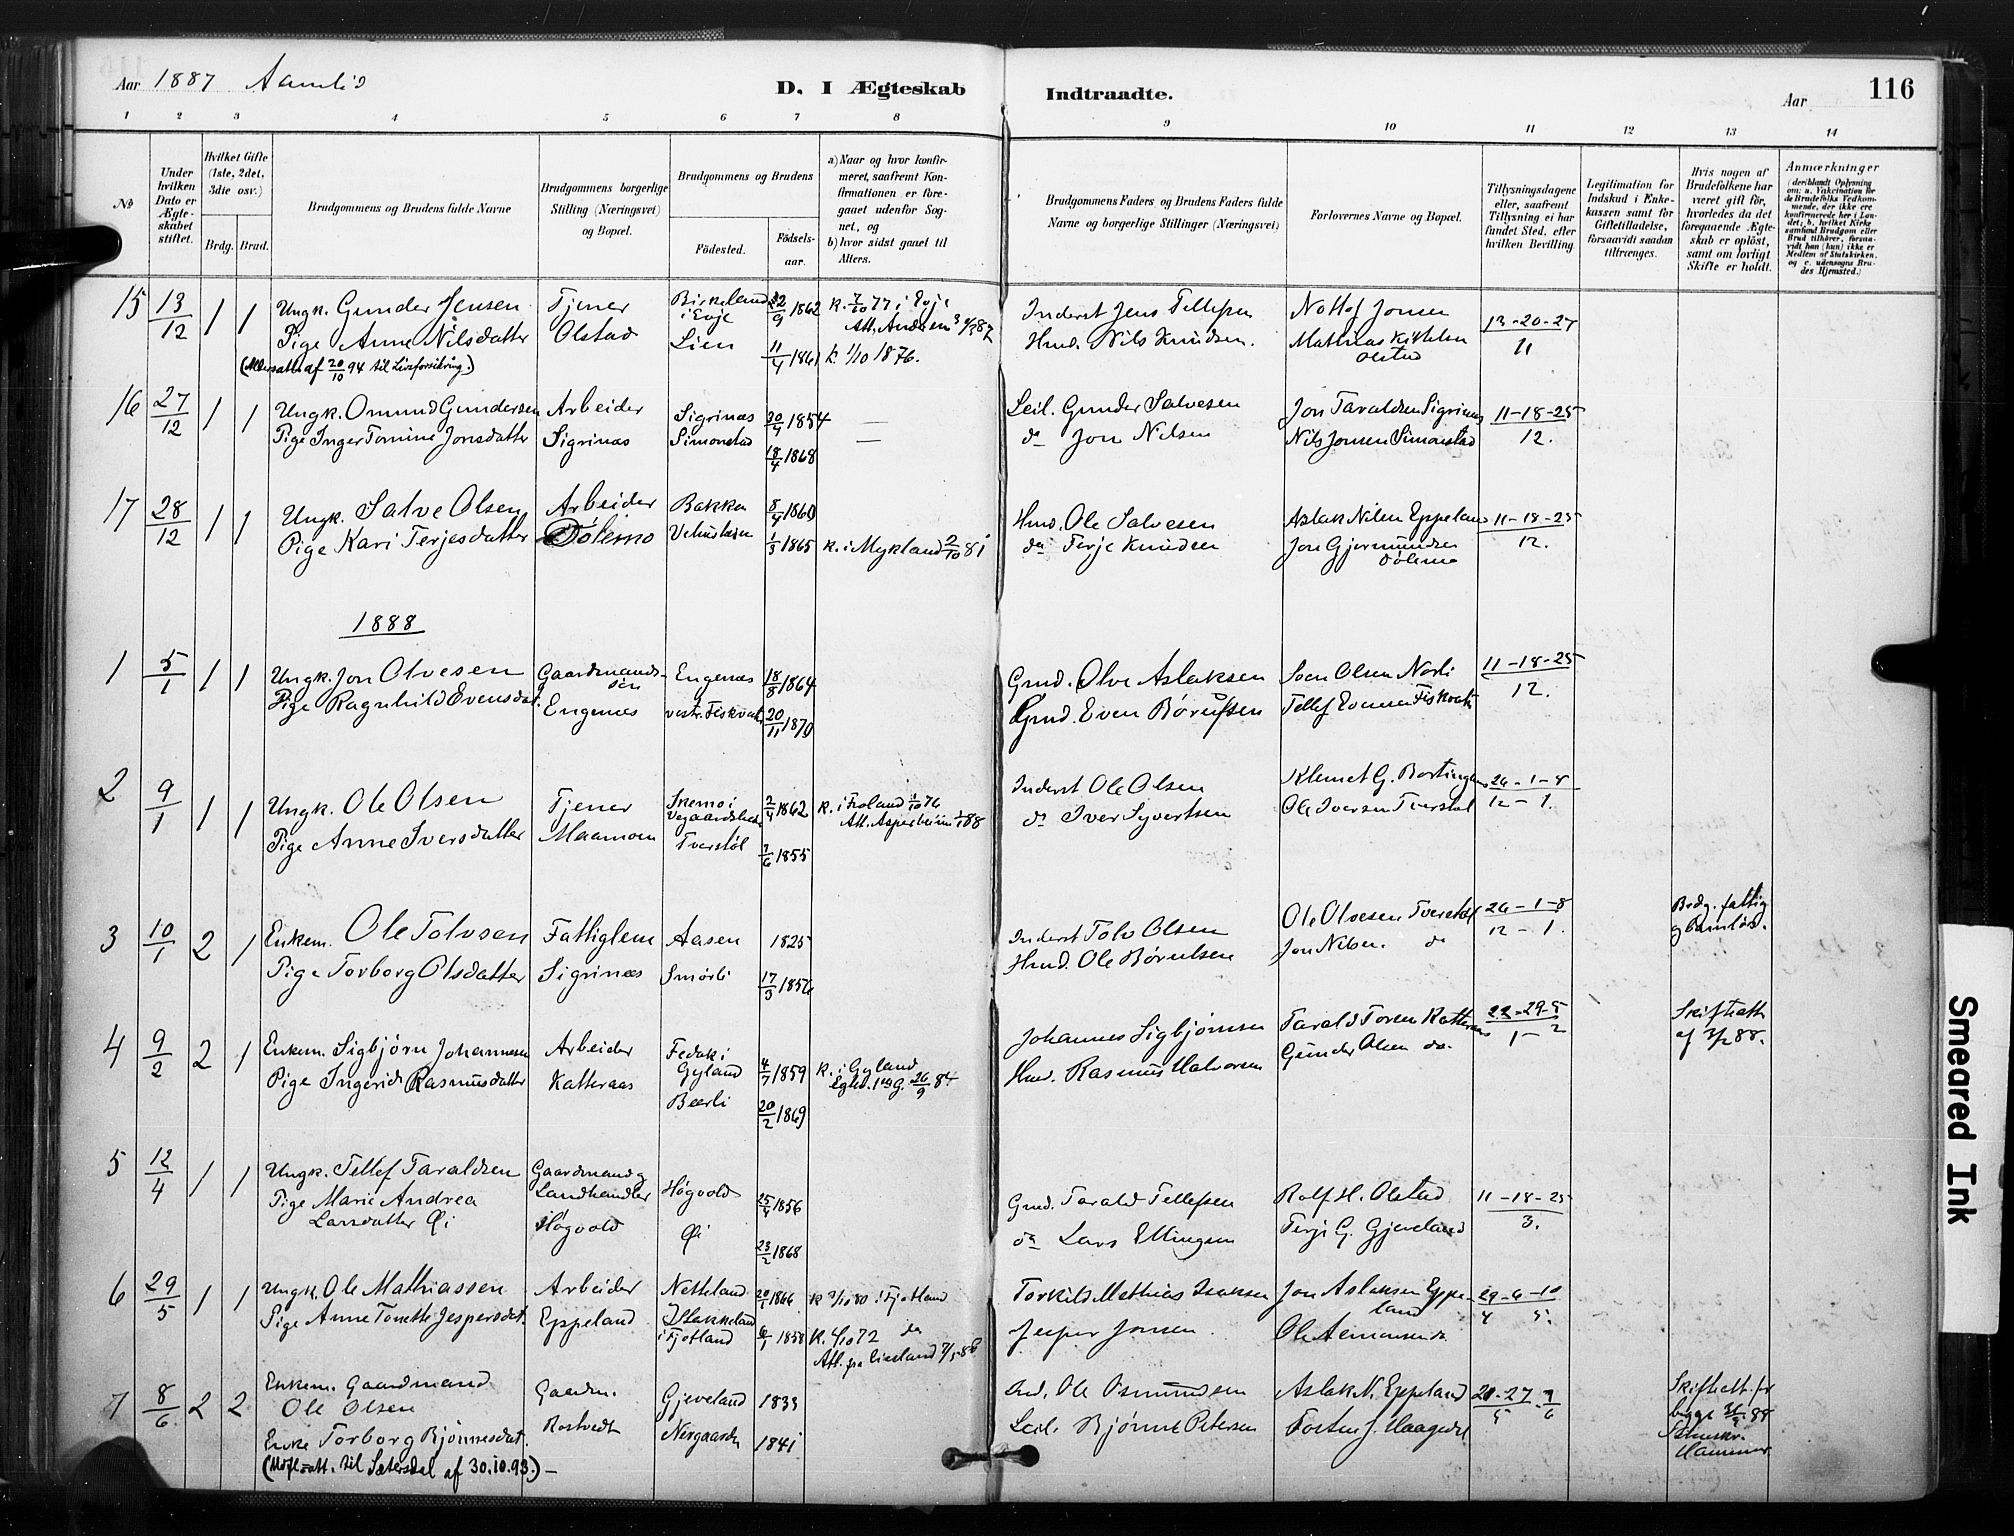 Aar 1887 Aamlid
D. I Ægteskab Indtraadte.
Aar
116
1 2 3 4 5 6 7 8 9 10 11 12 13 14
No
Under hvilken Dato er Ægteskabet stiftet.
Hvilket Gifte (1ste, 2det, 3die osv.)
Brdg. Brud.
Brudgommens og Brudens fulde Navne
Brudgommens borgerlige Stilling (Næringsvei) og Bopæl.
Brudgommens og Brudens
Födested.
Födselsaar.
a) Naar og hvor konfirmeret, saafremt Konfirmationen er foregaaet udenfor Sognet, og
b) hvor sidst gaaet til Alters.
Brudgommens Faders og Brudens Faders fulde Navne og borgerlige Stillinger (Næringsvei)
Forlovernes Navne og Bopæl.
Tillysningsdagene eller, saafremt Tillysning ei har fundet Sted, efter hvilken Bevilling
Legitimation for Indskud i Enkekassen samt for Giftetilladelse, forsaavidt saadan tiltrænges.
Hvis nogen af Brudefolkene har været gift för, hvorledes da det foregaaende Ægteskab er oplöst, samt om lovligt Skifte er holdt.
Anmærkninger
15 13/12 1 1 Ungk. Gunder Jensen Tjener Birkeland i Evje 22/9 1862 k. 7/10 77 i Evje
Inderst Jens Tellefsen Notto Jonsen 13-20-27
Pige Anne Nilsdatter Olstad Lien 11/4 1861 k. 1/10 1876.
Hmd. Nils Knudsen. Mathias Kittelsen Olstad 11
af 20/10 94 til Livsforsikring.)
16 27/12 1 1 Ungk. Omund Gundersen Arbeider Sigrinæs 20/4 1854 —
Leil. Gunder Salvesen Jon Taraldsen Sigrinæs 11-18-25
Pige Inger Tomine Jonsdatter Sigrinæs Simonstad 18/4 1868 —
do Jon Nilsen Nils Jonsen Simonstad 12.
17 28/12 1 1 Ungk. Salve Olsen Arbeider Bakken 8/4 1860
Hmd. Ole Salvesen Aslak Nilsen Eppeland 11-18-25
Pige Kari Terjesdatter Dölemo 1/3 1865 k. i Mykland 2/10 81
do Terje Knudsen Jon Gjermundsen Dölemo 12.
1888
1 5/1 1 1 Ungk. Jon Olvesen Gaardmandssön Engenæs 18/8 1864
Gmd. Olve Aslaksen Sven Olsen Norli 11-18-25
Pige Ragnhild Evensdat. Engenes vestr. Fiskvatn 20/11 1870
Gmd. Even Börufsen Tellef Evensen Fiskvatn 12.
2 9/1 1 1 Ungk. Ole Olsen Tjener Skemo i Vegaardsheien 2/4 1862 k. i Froland 1/10 76
Inderst Ole Olsen Klemet G. 26-1-8
Pige Anne Iversdatter Maamoen Tverstöl 7/6 1855
do Iver Syvertsen Ole Iversen Tverstöl 12-1.
3 10/1 2 1 Enkem. Ole Tolvsen Fattiglem Aasen 1825
Inderst Tolv Olsen Ole Olvesen Tverstöl 26-1-8 Brdg. fattig
Pige Torborg Olsdatter Sigrinæs Smörli 17/3 1856
Hmd. Ole Börulsen Jon Nilsen do 12-1. og barnlös.
4 9/2 2 1 Enkem. Sigbjörn Johannesen Arbeider i Gyland 4/7 1859 k. i Gyland
Johannes Sigbjörnsen Tarald Torsen Katteraas 22-29-5 Skifteatt.
Pige Ingerid Rasmusdatter Katteraas Beerli 20/2 1869
Hmd. Rasmus Halvorsen Gunder Olsen do. 1-2 af 3/2 88.
5 12/4 1 1 Ungk. Tellef Taraldsen Gaardmand og Landhandler Högvold 25/4 1856
Gmd. Tarald Tellefsen Rolf H. Olstad 11-18-25
Pige Marie Andrea Larsdatter Öi Högvold Öi 23/2 1868
do Lars Ellingsen Terje G. Gjeveland 3.
6 29/5 1 1 Ungk. Ole Mathiassen Arbeider Netteland 20/1 1866 k. 3/10 80 i Fjotland
Torkild Mathias Isaksen Jon Aslaksen Eppeland 29-6-10
Pige Anne Tonette Jespersdat. Eppeland Stakkeland i Fjotland 6/1 1858 k. 6/10 72 do
Jesper Jonsen. Ole Aanonsen do 4 5.
7 8/6 2 2 Enkem. Gaardmand Ole Olsen Gaardm. Gjeveland 1833
Gmd. Ole Osmundsen Aslak N. Eppeland 20-27-3 Skifteatt. for
Enke Torborg Bjönnesdat. Rostvedt Nesgaarden 1841
Leil. Bjönne Petersen Tosten J. Haugedal 5 6 begge 31/5 88
til Sætersdal af 30.10.93.) –
Smeared Ink